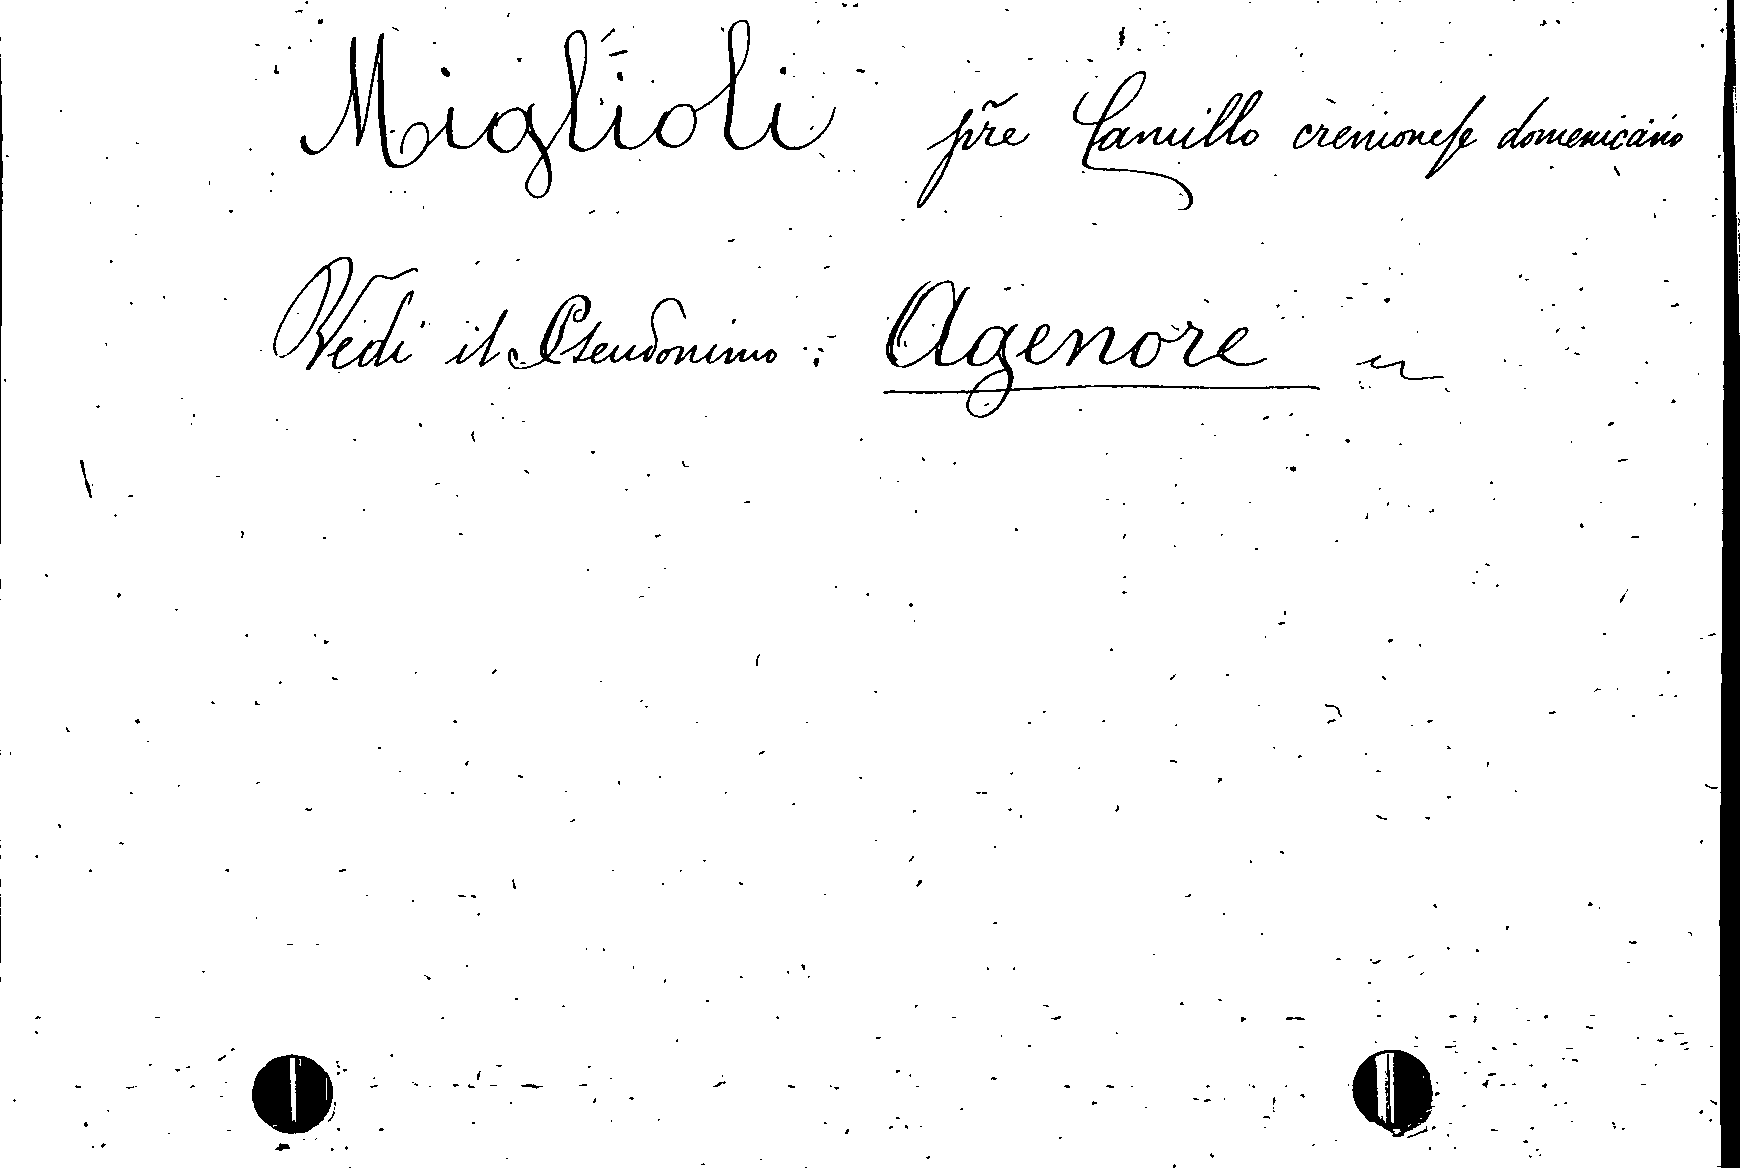 Miglioli pr̃e Camillo cremonese domenicano
Vedi il Pseudonimo : Agenore